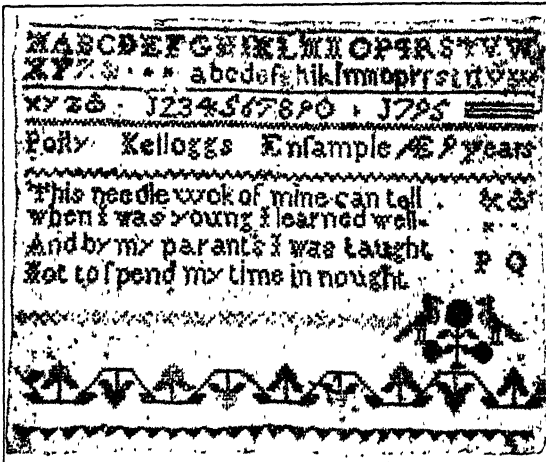 ABCDEFGHIKLMNOPQRSTVW
XYZ& abcdefghiklmnopqrsstuvwx
xyz& 1234567890 1795
Polly Kelloggs Ensample Æ 9 years
This needle work of mine can tell
when I was young I learned well
And by my parants I was taught
Not to spend my time in nought
P Q